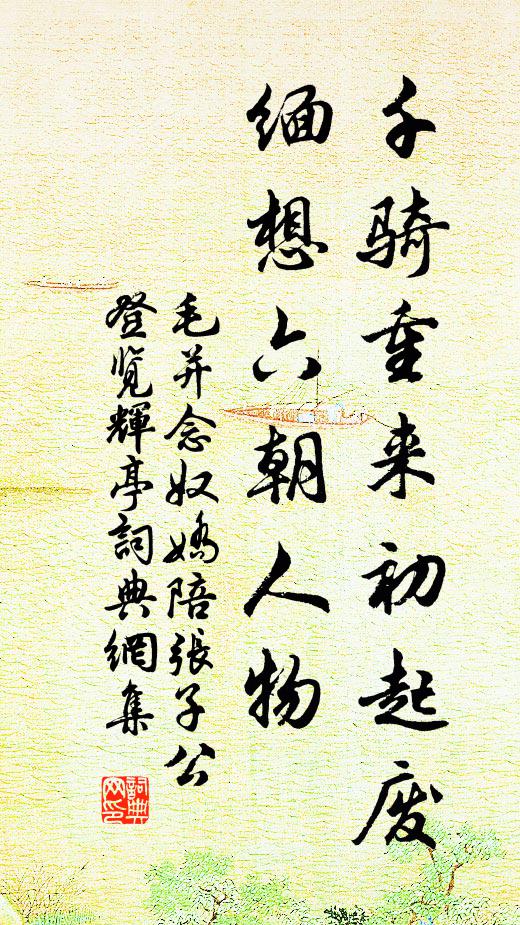 千骑重来初起废
缅想六朝人物
毛并念奴娇陪張子公
登览輝亭詞典網集
詞典网印